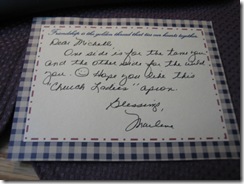 Friendship is the golden thread that ties our hearts together.
Dear Michelle,
One side is for the tame you
and the other side for the wild
you. I hope you like this
"Church Ladies" apron.
Blessings,
Marlene